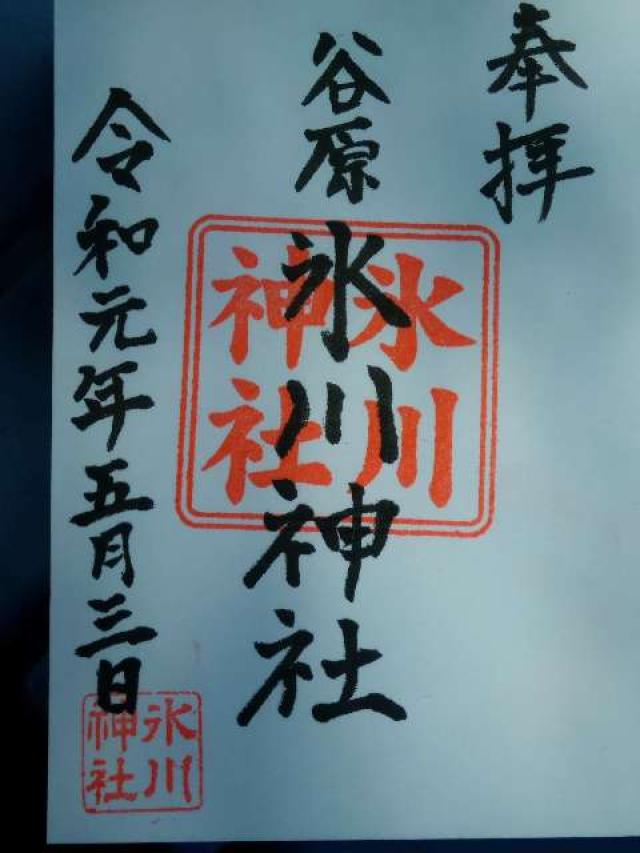 奉拝
谷原
氷川神社
氷川
神社
令和元年五月三日
氷川
神社